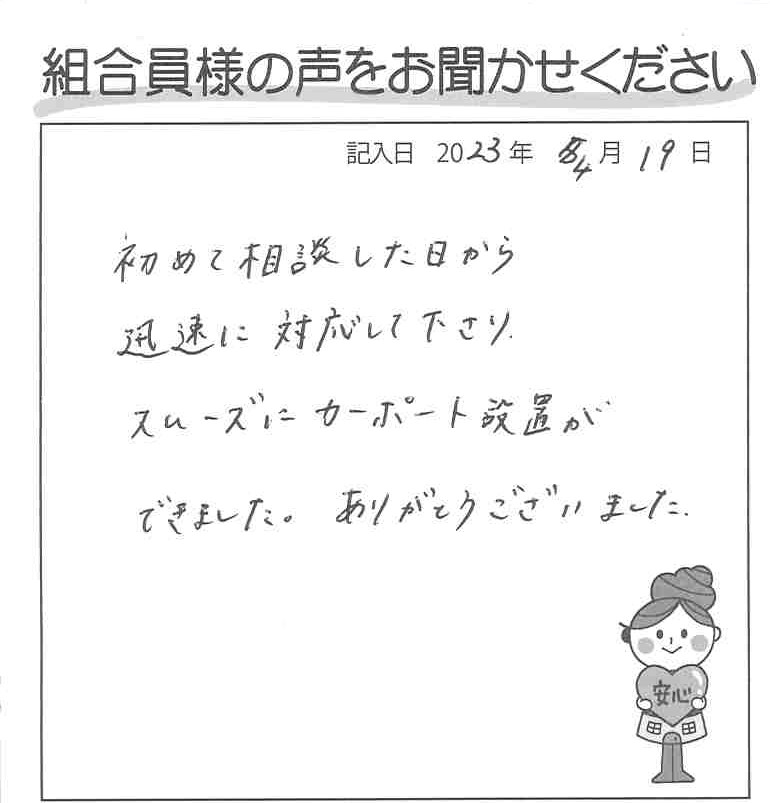 組合員様の声をお聞かせください
記入日 2023年 4月 19日
初めて相談した日から
迅速に対応して下さり.
スムーズにカーポート設置が
できました。ありがとうございました.
安心